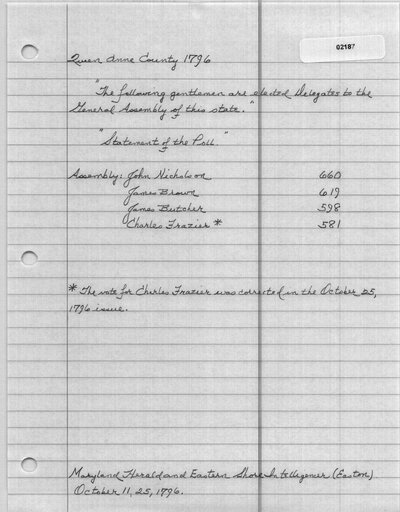 Queen Anne County 1796
02187
"The following gentlemen are elected Delegates to the
General Assembly of this state."
"Statement of the Poll."
Assembly: John Nicholson 660
James Brown 619
James Butcher 598
Charles Frazier * 581
* The vote for Charles Frazier was corrected in the October 25,
1796 issue.
Maryland Herald and Eastern Shore Intelligencer (Easton).
October 11, 25, 1796.